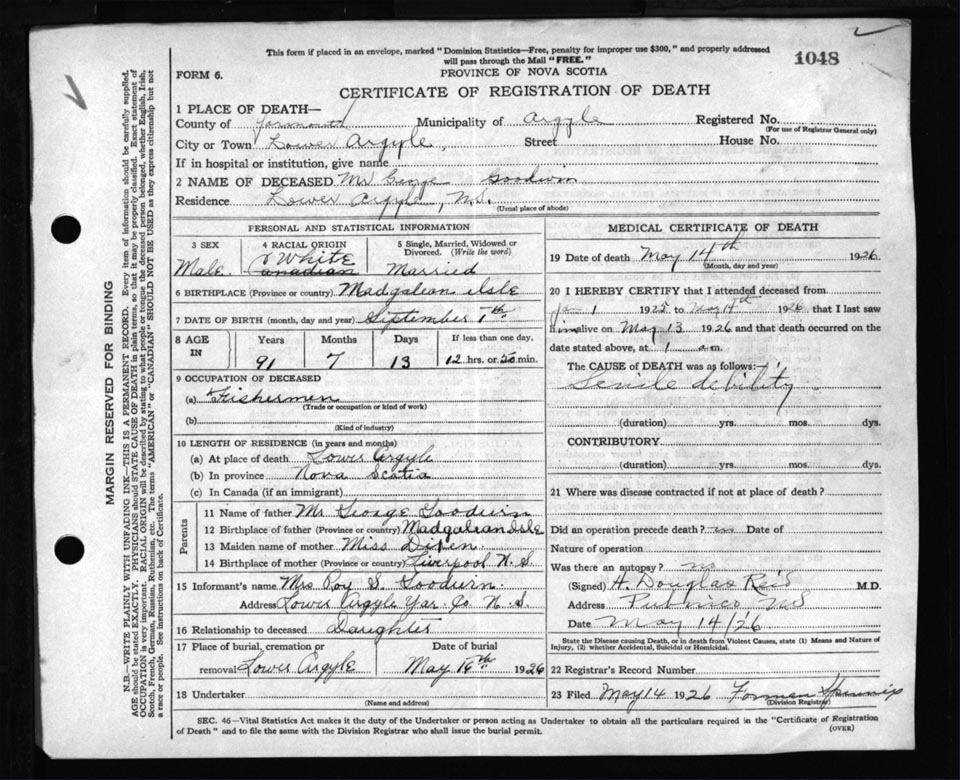 This form if placed in an envelope, marked "Dominion Statistics—Free, penalty for improper use $300," and properly addressed
will pass through the Mail "FREE."
1048
FORM 6.
PROVINCE OF NOVA SCOTIA
CERTIFICATE OF REGISTRATION OF DEATH
1 PLACE OF DEATH—
County of Yarmouth Municipality of Argyle Registered No.
(For use of Registrar General only)
City or Town Lower Argyle, Street House No.
If in hospital or institution, give name
2 NAME OF DECEASED Mr George Goodwin
Residence Lower Argyle, N.S.
(Usual place of abode)
PERSONAL AND STATISTICAL INFORMATION
3 SEX
Male
4 RACIAL ORIGIN
White
Canadian
5 Single, Married, Widowed or Divorced. (Write the word)
Married
6 BIRTHPLACE (Province or country) Madgalean Isle
7 DATE OF BIRTH (month, day and year) September 1th
8 AGE IN
Years Months Days If less than one day,
91 7 13 12 hrs. or 50 min.
9 OCCUPATION OF DECEASED
(a) Fishermen
(Trade or occupation or kind of work)
(b)
(Kind of industry)
10 LENGTH OF RESIDENCE (in years and months)
(a) At place of death Lower Argyle
(b) In province Nova Scotia
(c) In Canada (if an immigrant)
Parents
11 Name of father Mr George Goodwin
12 Birthplace of father (Province or country) Madgalean Isle
13 Maiden name of mother Miss
14 Birthplace of mother (Province or country) Liverpool N.S.
15 Informant's name Mrs Roy S. Goodwin.
Address Lower Argyle Yar. Co N.S
16 Relationship to deceased Daughter
17 Place of burial, cremation or removal Lower Argyle
Date of burial
May 16th 1926
18 Undertaker
(Name and address)
MEDICAL CERTIFICATE OF DEATH
19 Date of death May 14th 1926
(Month, day and year)
20 I HEREBY CERTIFY that I attended deceased from
1 1925 to May 14th 1926 that I last saw
him alive on May 13 1926 and that death occurred on the
date stated above, at 1 a.m.
The CAUSE of DEATH was as follows:
Senile debility
(duration) yrs. mos. dys.
CONTRIBUTORY
(duration) yrs. mos. dys.
21 Where was disease contracted if not at place of death?
Did an operation precede death? no Date of
Nature of operation
Was there an autopsy? no
(Signed) H. Douglas Reid M.D.
Address Pubnico NS
Date May 14/26
State the Disease causing Death, or in death from Violent Causes, state (1) Means and Nature of
Injury, (2) whether Accidental, Suicidal or Homicidal.
22 Registrar's Record Number
23 Filed May 14 1926 Forman
(Division Registrar)
SEC. 46—Vital Statistics Act makes it the duty of the Undertaker or person acting as Undertaker to obtain all the particulars required in the "Certificate of Registration
of Death" and to file the same with the Division Registrar who shall issue the burial permit.
(OVER)
MARGIN RESERVED FOR BINDING
N.B.—WRITE PLAINLY WITH UNFADING INK—THIS IS A PERMANENT RECORD. Every item of information should be carefully supplied.
AGE should be stated EXACTLY. PHYSICIANS should STATE CAUSE OF DEATH in plain terms, so that it may be properly classified. Exact statement of
OCCUPATION is very important. RACIAL ORIGIN will be described by stating to what people or tongue the deceased person belonged, whether English, Irish,
Scotch, French, German, Russian, Ruthenian, etc. The terms "AMERICAN" or "CANADIAN" SHOULD NOT BE USED as they express citizenship but not
a race or people. See instructions on back of Certificate.